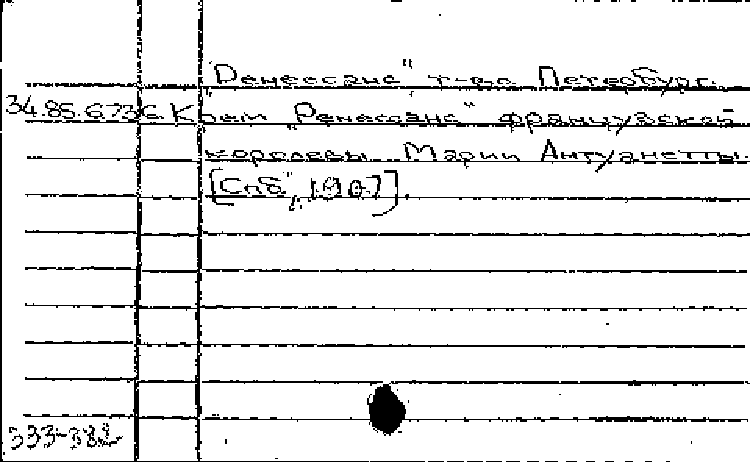 "Ренессанс" т-во Петербург.
34.85.6.73 Крем "Ренессанс" французской
королевы Марии Антуанетты.
[Спб", 1907].
333-382